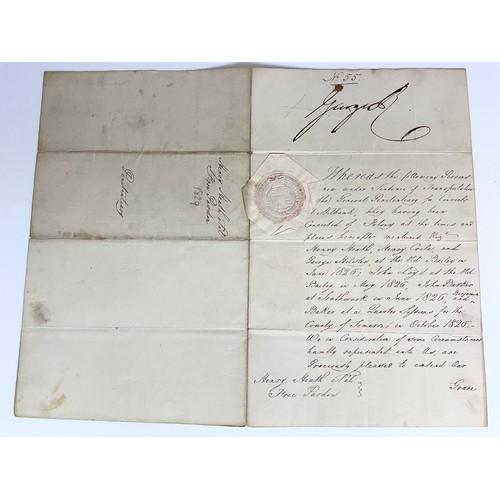 No. 55.
George R
Whereas the following Persons
are under Sentence of Transportation
the General Penitentiary for Convicts
Millbank, they having been
Convicted of Felony at the times and
places hereafter mentioned Viz:
Henry Heath, Henry Coxler and
George at the Old Bailey in
June 1826; John Loyd at the Old
Bailey in May 1826, John Barker
at Southwark in June 1826, and Benjamin
Baker at a Quarter Sessions for the
County of Somerset in October 1826;
We in Consideration of some Circumstances
humbly represented unto Us, are
Graciously pleased to extend Our
Grace
Henry Heath &al
Free Pardon
Henry Heath &al
Free Pardon
1829
Penitentiary